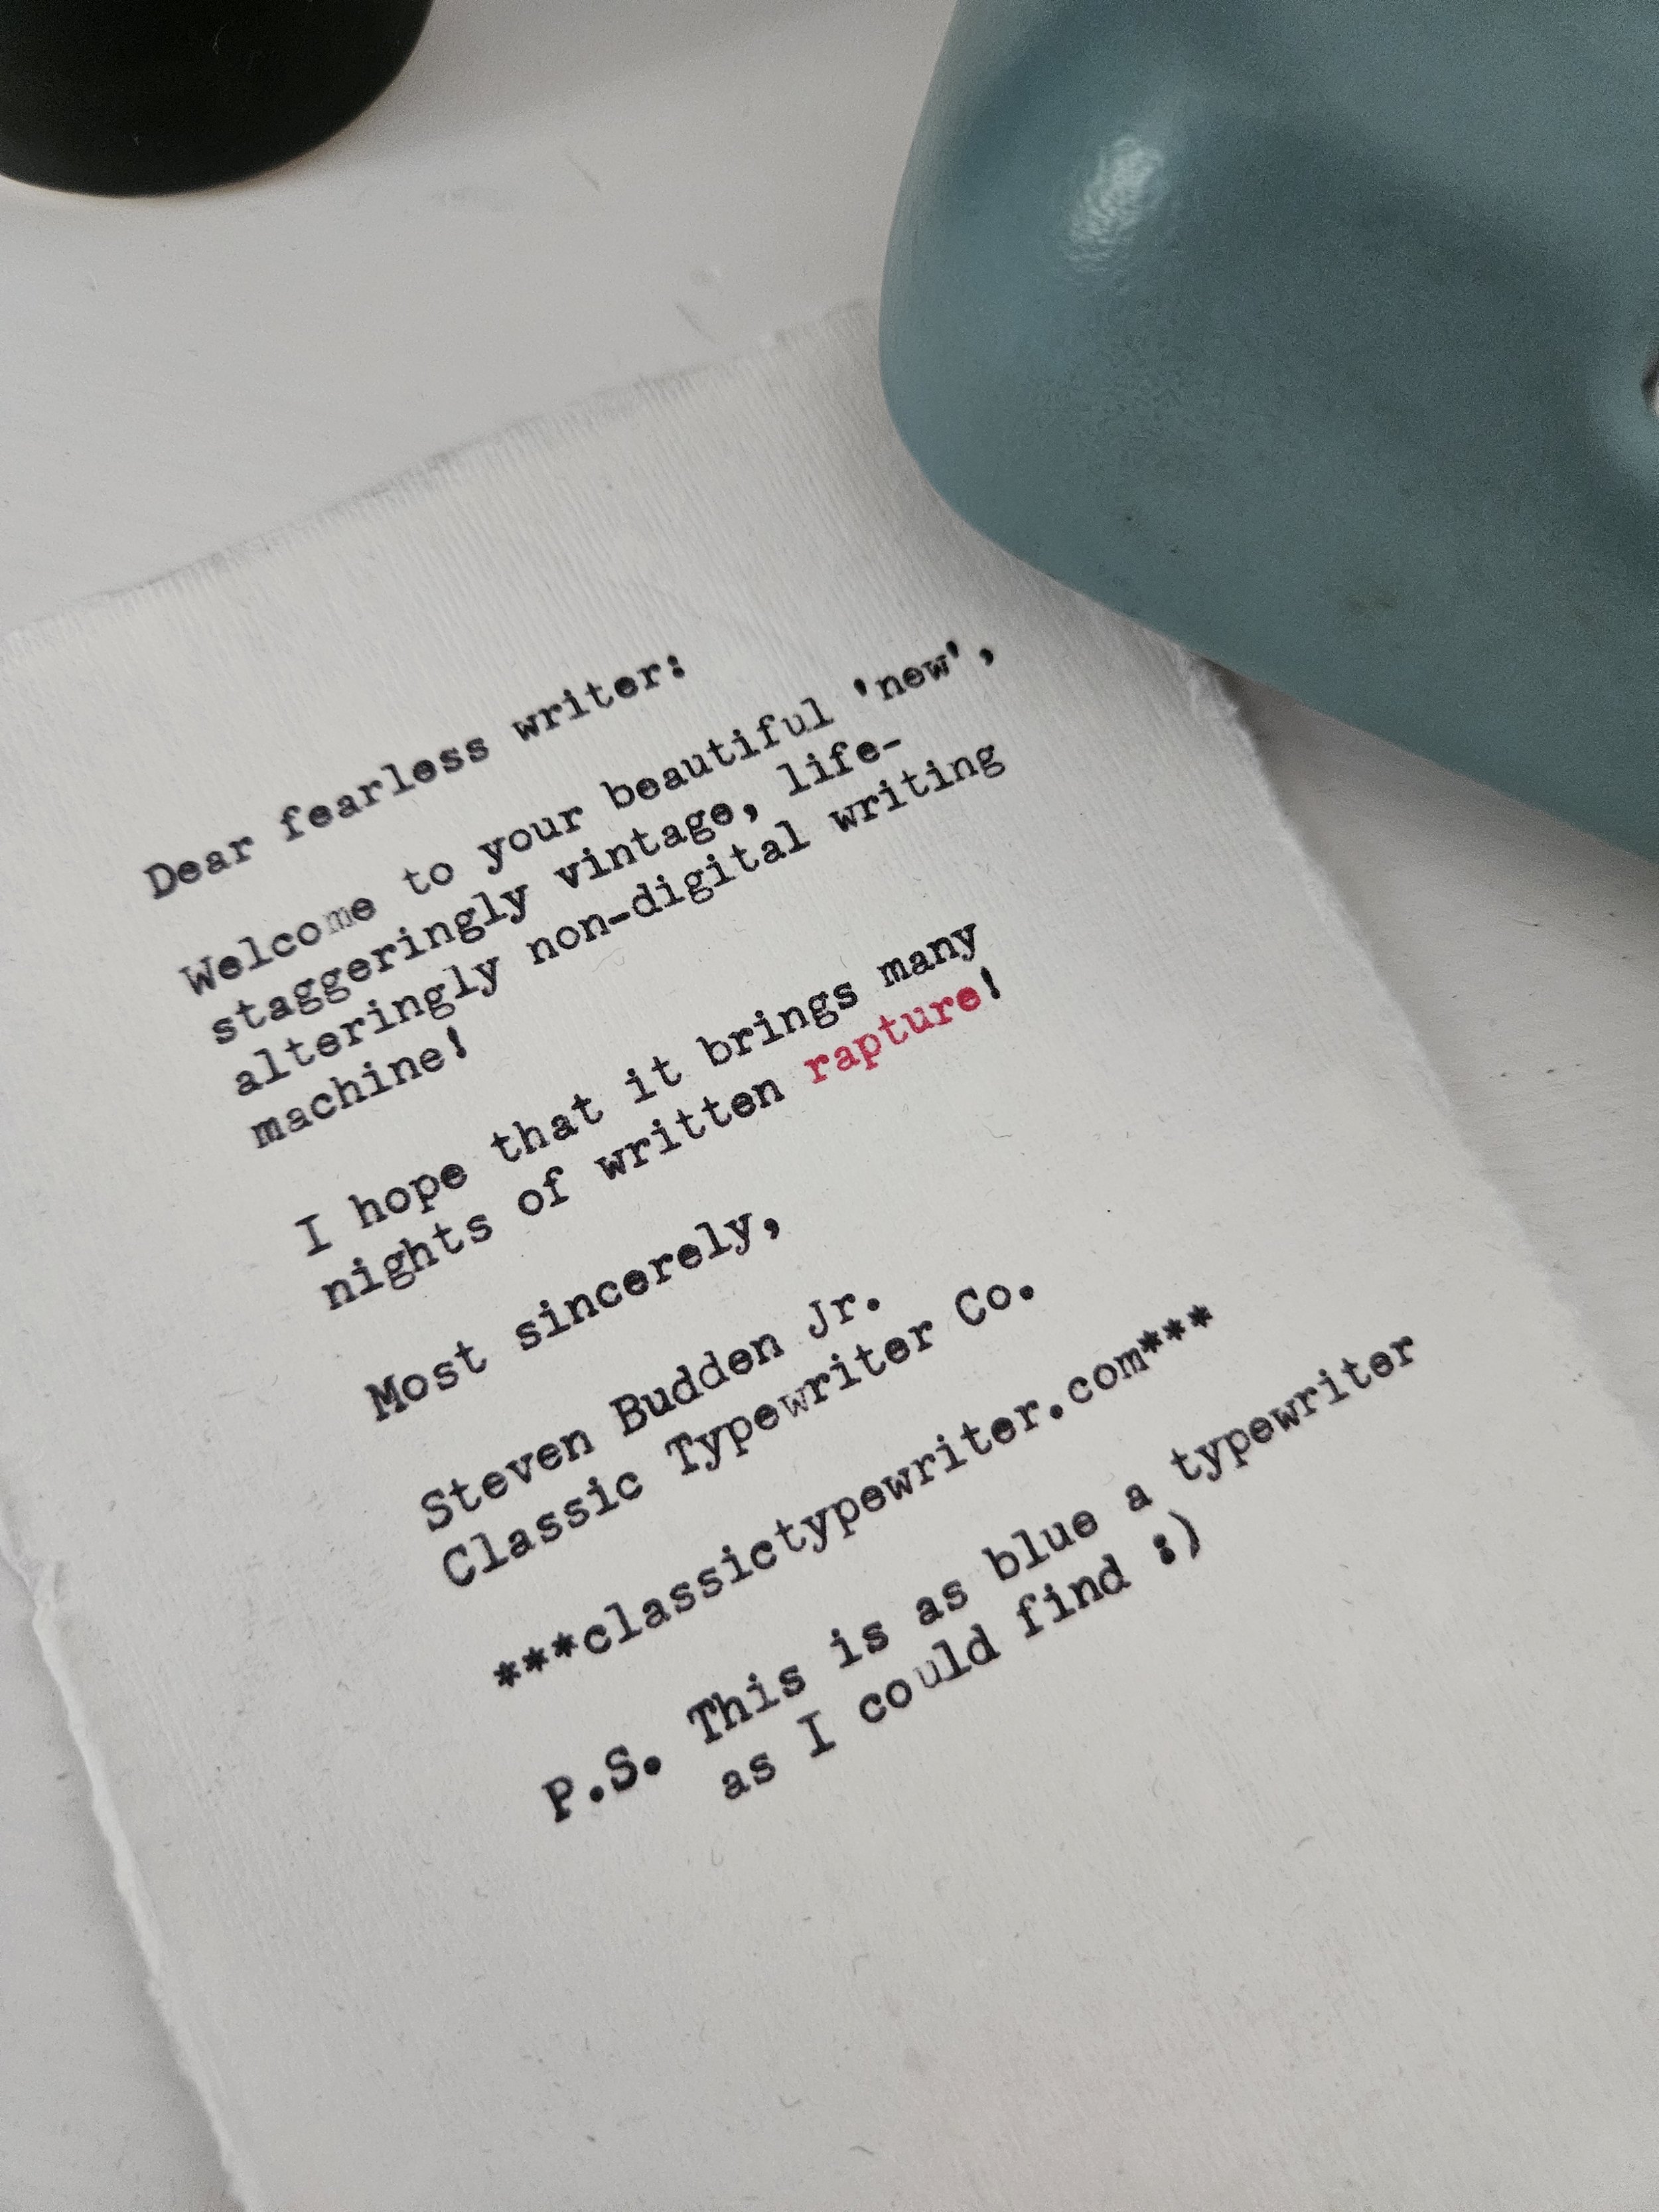 Dear fearless writer:
Welcome to your beautiful 'new',
staggeringly vintage, life-
alteringly non-digital writing
machine!
I hope that it brings many
nights of written rapture!
Most sincerely,
Steven Budden Jr.
Classic Typewriter Co.
***classictypewriter.com***
P.S. This is as blue a typewriter
as I could find :)